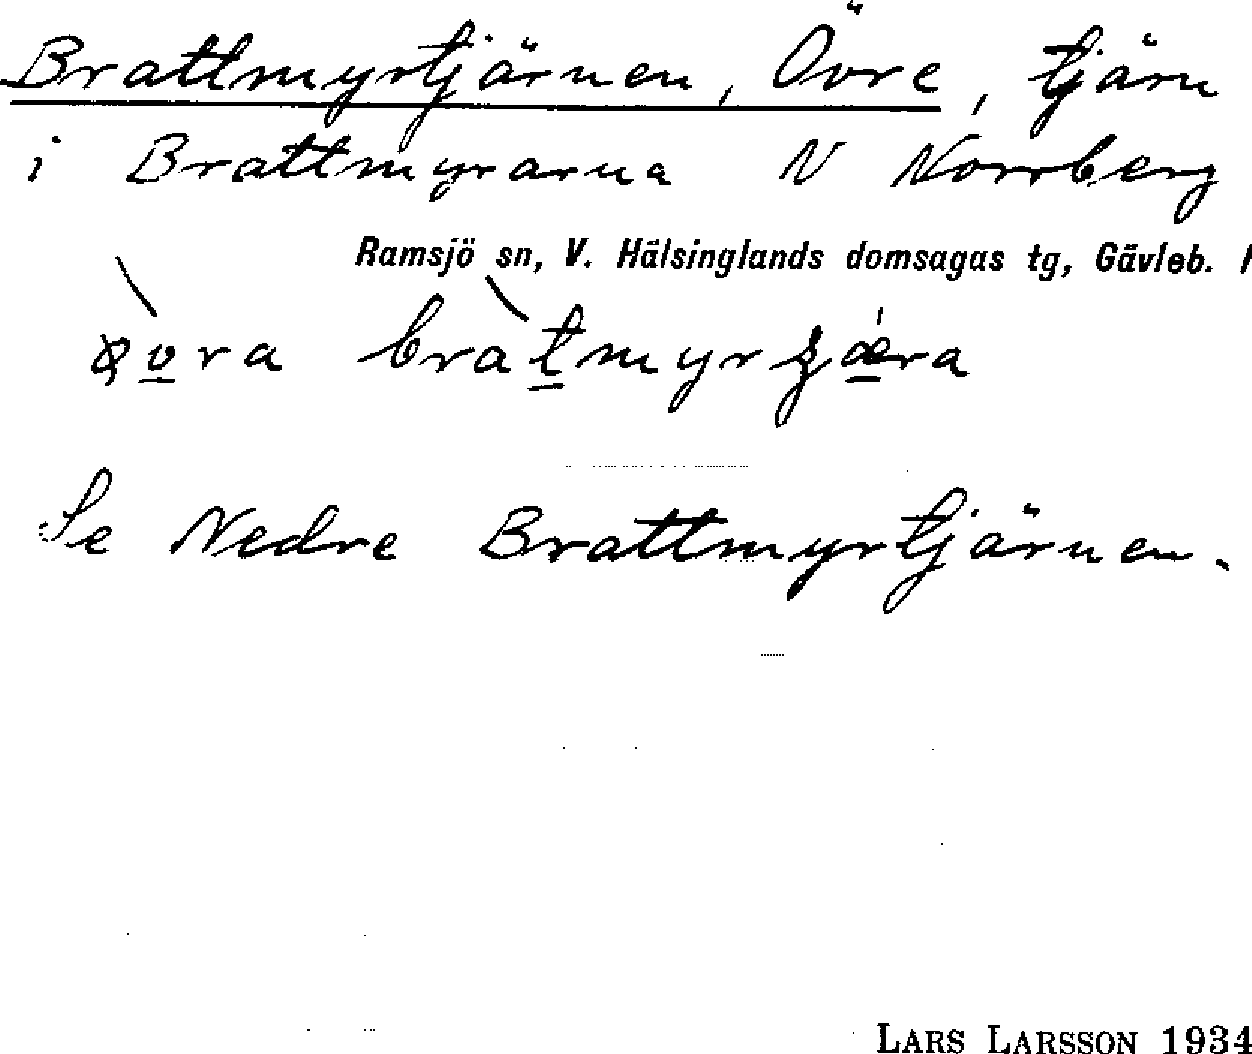 Brattmyrtjärnen, Övre, tjärn
i Brattmyrarna N Norrberg
Ramsjö sn, V. Hälsinglands domsagas tg, Gävleb. l
Se Nedre Brattmyrtjärnen.
LARS LARSSON 1934